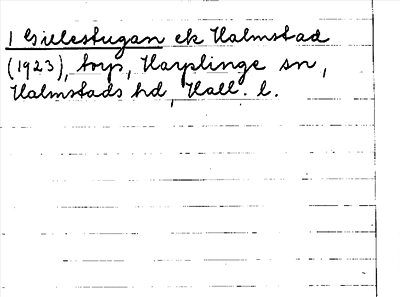 1 Gillestugan ek Halmstad
(1923), torp, Harplinge sn,
Halmstads hd, Hall. l.